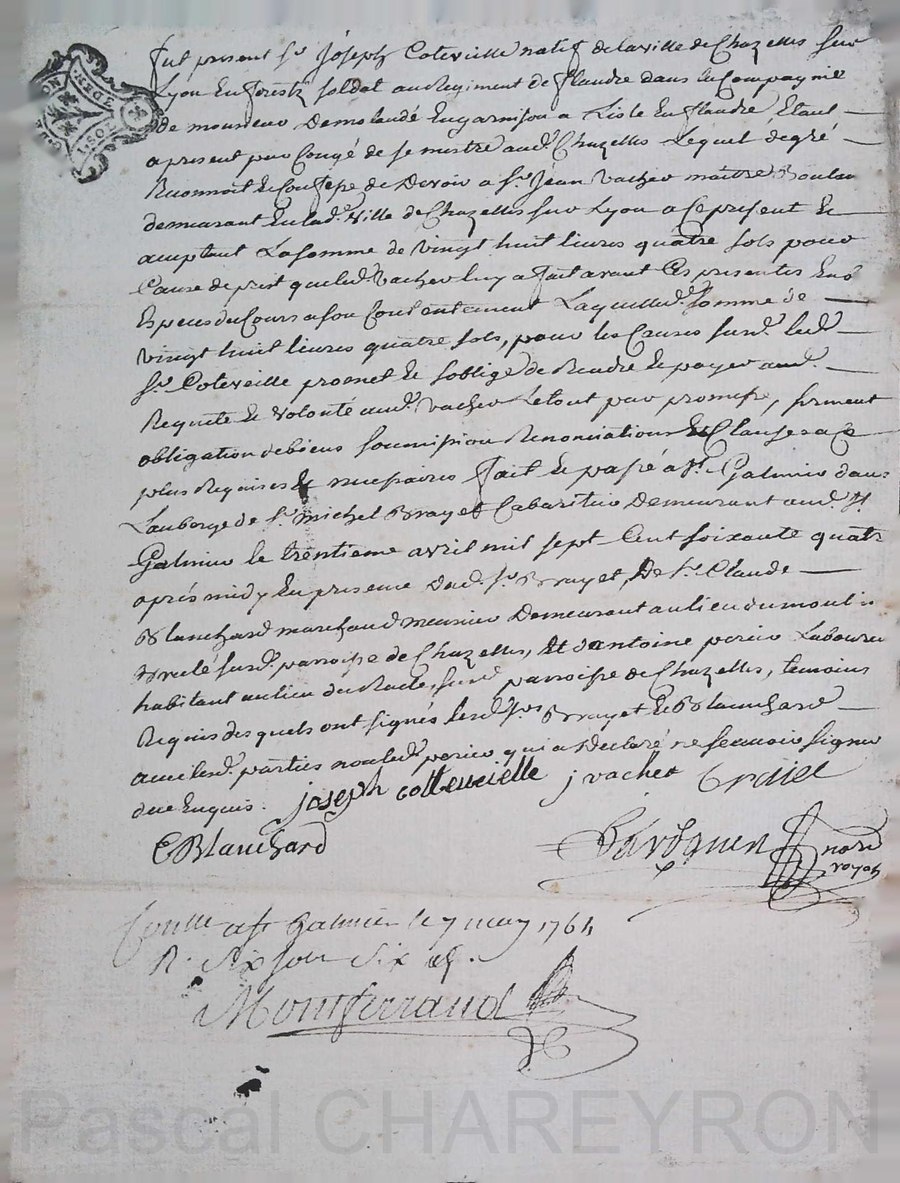 fut present sr. Joseph Coteveille natif de la ville de Chazelles sur
Lyon En forestz soldat au Regiment de flandre dans la Compagnie
de monsieur Demolandé En garnison a Lisle En flandre, Etant
a present par Congé de semestre aud. Chazelles Lequel de gré
Reconnoit Et Confesse De Devoir a sr. Jean Vacher maître Boulan
demeurant En lad. ville de Chazelles sur Lyon a Ce present Et
acceptant La somme de vingt huit livres quatre sols pour
Cause de prest que led. Vacher luy a fait avant Ces presentes En
Especes du Cours a son Contentement Laquelled. somme de
vingt huit livres quatre sols, pour les Causes susd. led.
sr. Coteveille promet Et soblige de Rendre Et payer aud.
Requete Et volonté aud. Vacher Le tout par promesse, serment
obligation de biens soumission Renonciations Et Clauses a Ce
plus Requises Et necessaires fait Et passé a St. Galmier dans
Lauberge de sr. michel Brayet Cabaretier Demeurant aud. St.
Galmier le trentieme avril mil sept Cent soixante quatre
aprés midy En presence dud. sr. Brayet, De sr. Claude
Blanchard marchand meunier Demeurant au lieu du moulin
Brulé susd. parroisse de Chazelles, Et d'antoine perier Laboureur
habitant au lieu du susd. parroisse de Chazelles, temoins
Requis des quels ont signés lesd. srs. Brayet Et Blanchard
avec lesd. parties non led. perier qui a Declaré ne scavoir signer
de ce Enquis. joseph cotteveielle j vacher Braiet
C Blanchard
notre
royal
Conlle a St Galmier le 7 may 1764
R. six sols six d.
Montferrand
Pascal CHAREYRON